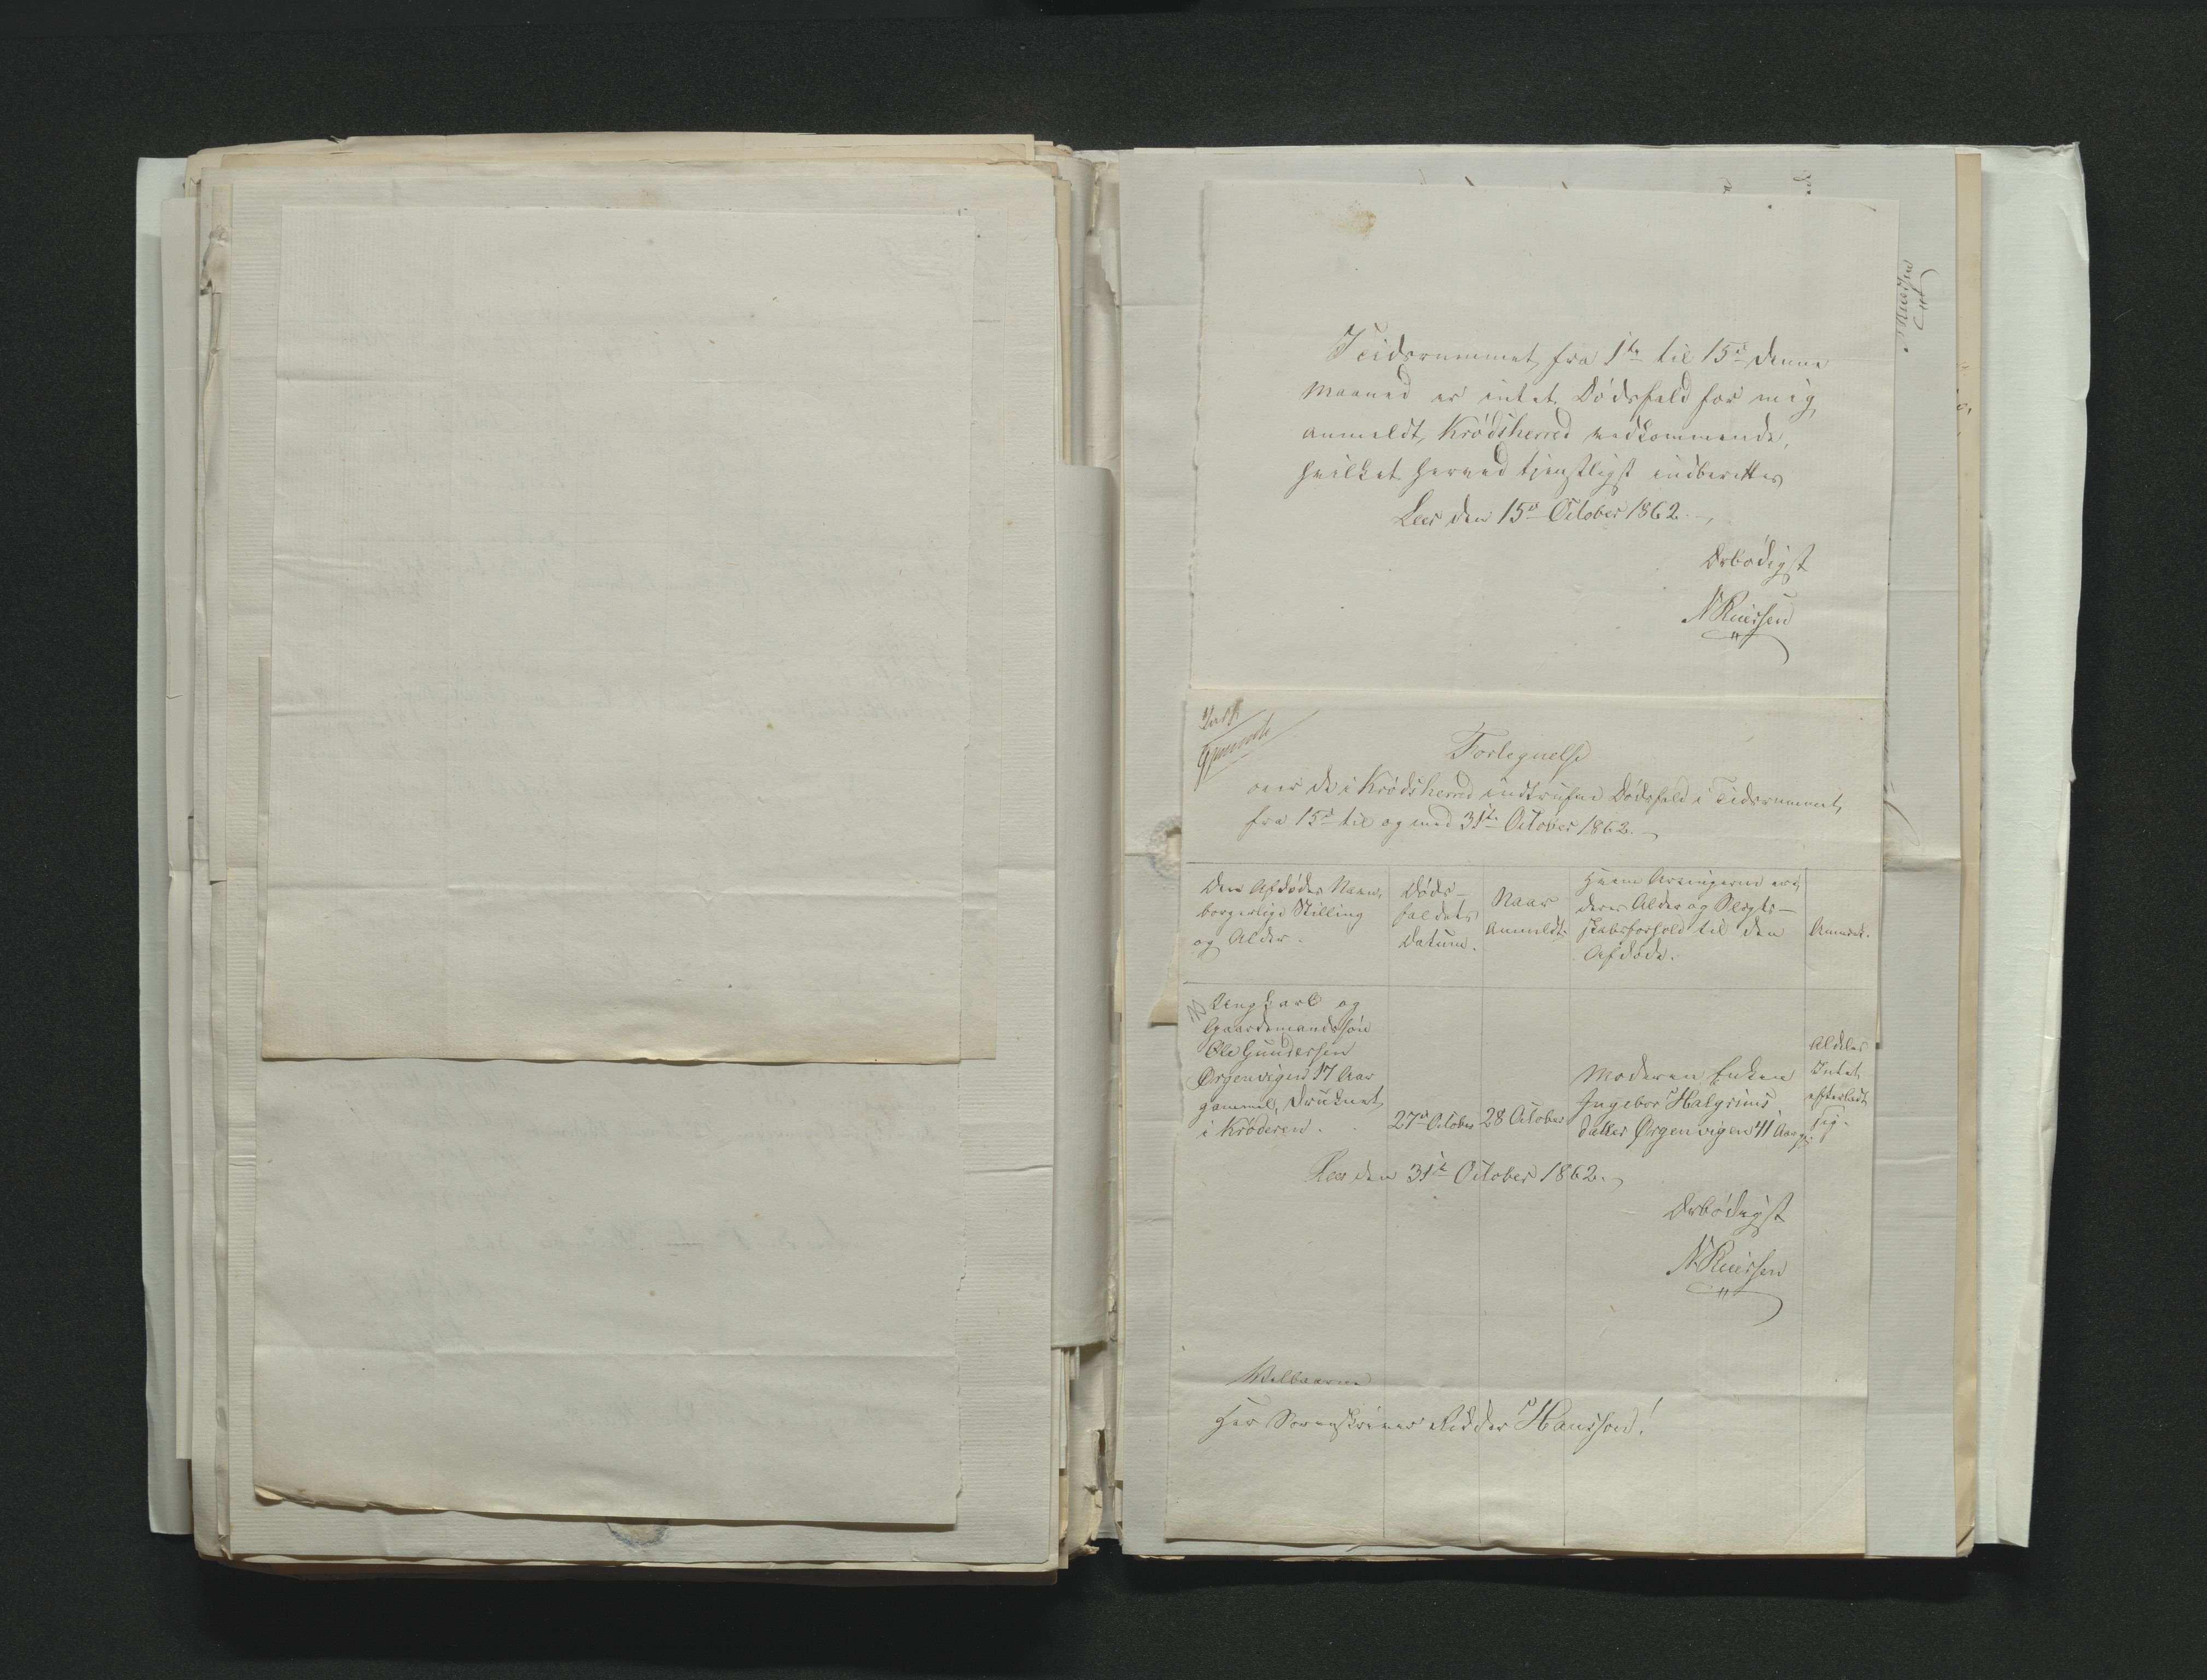 I Tidsrummet fra 1te til 15d denne
Maaned er intet Dødsfald for mig
anmeldt, Krødsherred vedkommende,
hvilket herved tjenstligst indberettes
Leer den 15d October 1862.
Ærbødigst
N Ruersen
Fortegnelse
over de i Krødsherred indtrufne Dødsfald i Tidsrummet
fra 15d til og med 31te October 1862.
Den Afdødes Navn,
borgerlige Stilling
og Alder.
Døds-
faldets
Datum.
Naar
anmeldt.
Hvem Arvingerne ere,
deres Alder og Slægts-
skabsforhold til den
Afdøde.
Anmærk.
Ungkarl og
Gaardmandssøn
Ole Gundersen
Ørgenvigen 17 Aar
gammel, druknet
i Krøderen.
27d October
28 October
Moderen Enken
Ingebor Halgrims
datter Ørgenvigen 41 Aar g.
Aldeles
Intet
efterladt
sig.
Leer den 31te October 1862.
Ærbødigst
N Ruersen
Velbaarne
Herr Sorenskriver Ridder Hansson!